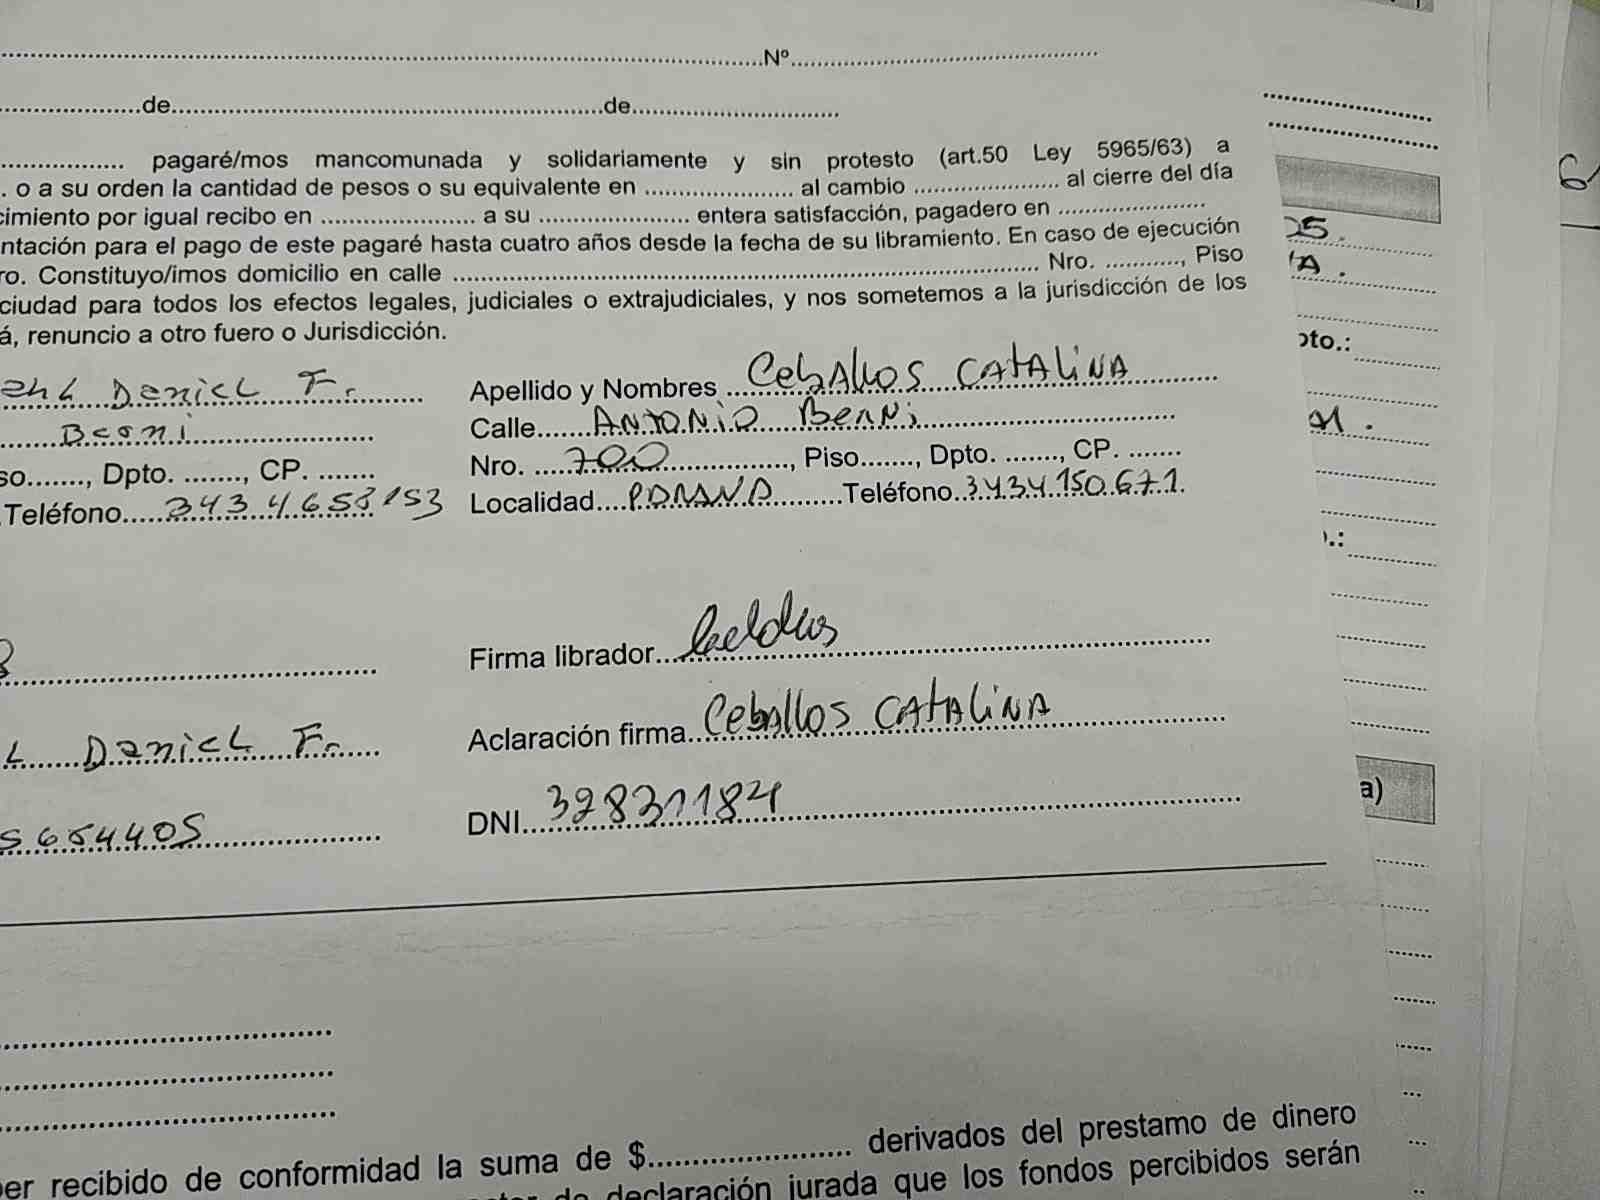 Nº
de de
pagaré/mos mancomunada y solidariamente y sin protesto (art.50 Ley 5965/63) a
. o a su orden la cantidad de pesos o su equivalente en ..................... al cambio ..................... al cierre del día
cimiento por igual recibo en ..................... a su ..................... entera satisfacción, pagadero en .....................
ntación para el pago de este pagaré hasta cuatro años desde la fecha de su libramiento. En caso de ejecución
ro. Constituyo/imos domicilio en calle ..................... Nro. ..........., Piso
ciudad para todos los efectos legales, judiciales o extrajudiciales, y nos sometemos a la jurisdicción de los
á, renuncio a otro fuero o Jurisdicción.
Daniel F. Apellido y Nombres Ceballos CATALINA
Berni Calle ANTONIO Berni
so......., Dpto. ......., CP. ....... Nro. 700, Piso......., Dpto. ......., CP. .......
Teléfono 3434658153 Localidad PARANA Teléfono 3434150671
Firma librador
L Daniel F. Aclaración firma Ceballos CATALINA
5654405 DNI
pto.:
.:
a)
er recibido de conformidad la suma de $..................... derivados del prestamo de dinero
de declaración jurada que los fondos percibidos serán